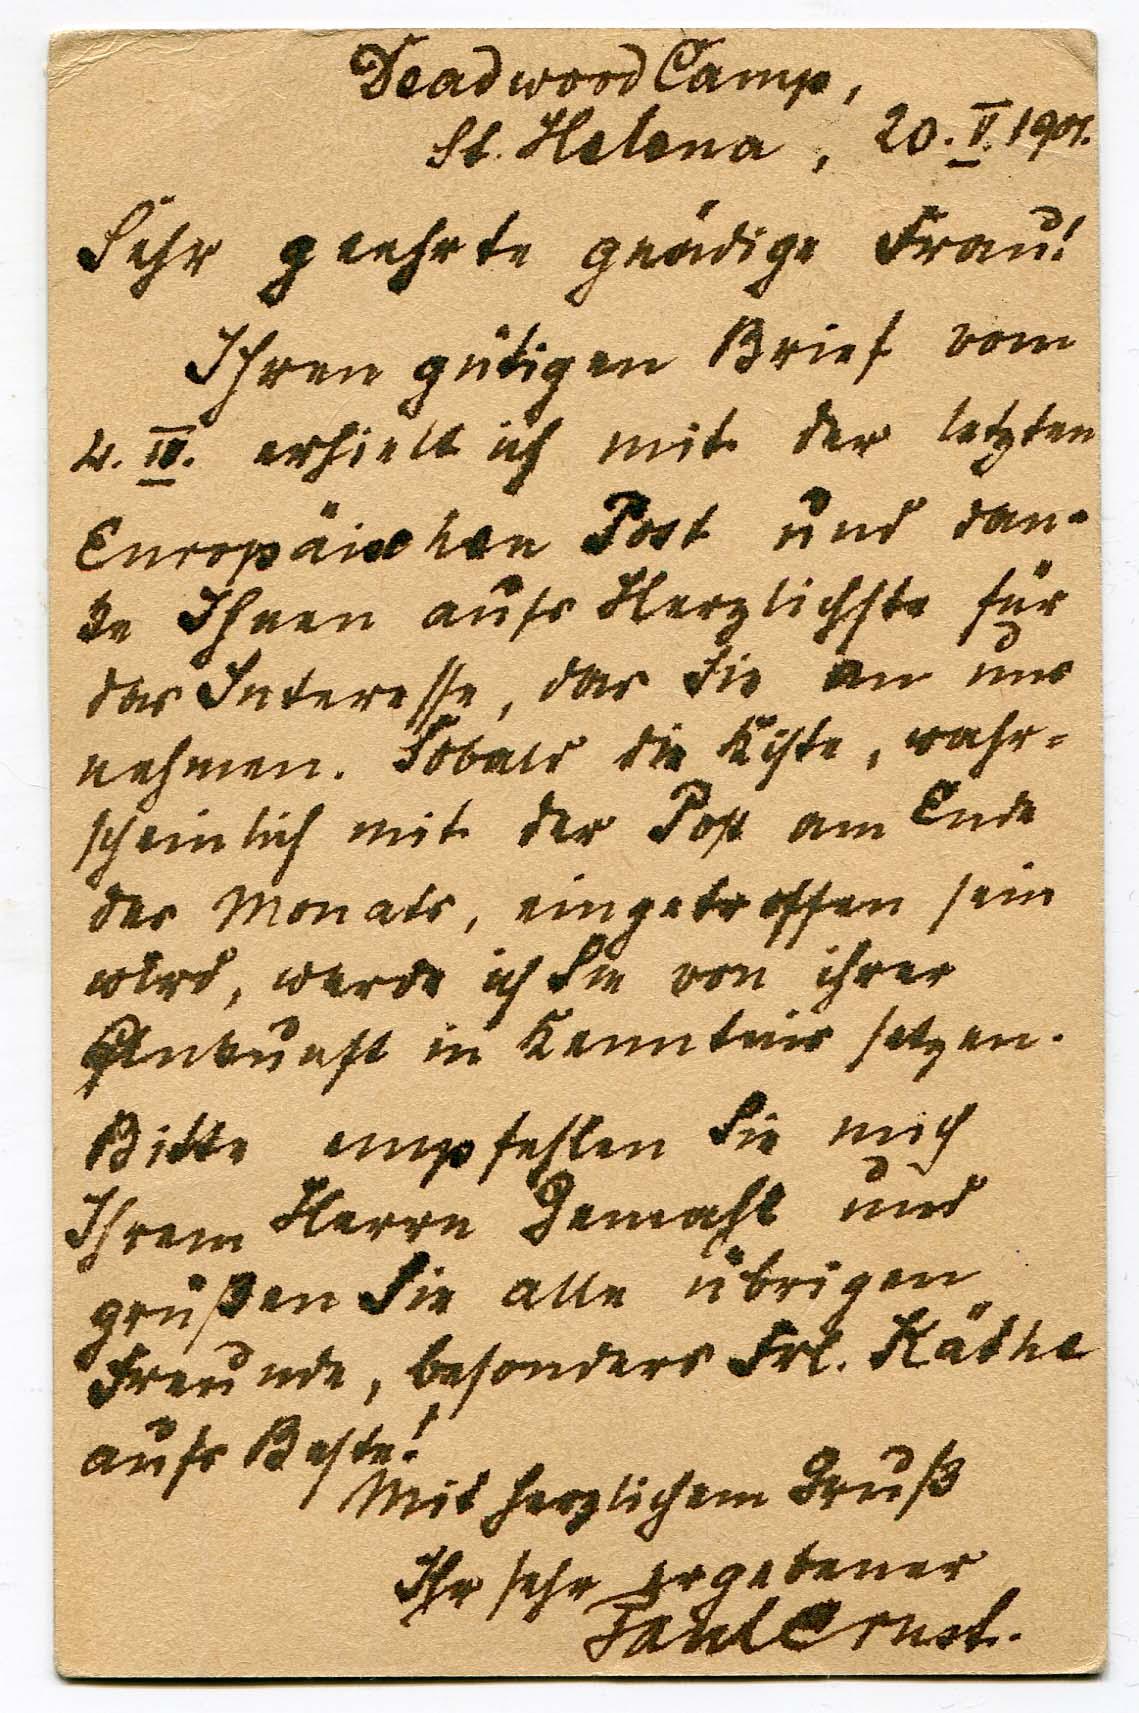 Deadwood Camp,
St. Helena, 20. V. 1901.
Sehr geehrte gnädige Frau!
Ihren gütigen Brief vom
2. IV. erhielt ich mit der letzten
Europäischen Post und dan-
ke Ihnen aufs Herzlichste für
das Interesse, das Sie an uns
nehmen. Sobald die Kiste, wahr-
scheinlich mit der Post am Ende
des Monats, eingetroffen sein
wird, werde ich Sie von ihrer
Ankunft in Kenntnis setzen.
Bitte empfehlen Sie mich
Ihrem Herrn Gemahl und
grüßen Sie alle übrigen
Freunde, besonders Frl. Käthe
aufs Beste!
Mit herzlichem Gruß
Ihr sehr ergebener
Paul Ernst.